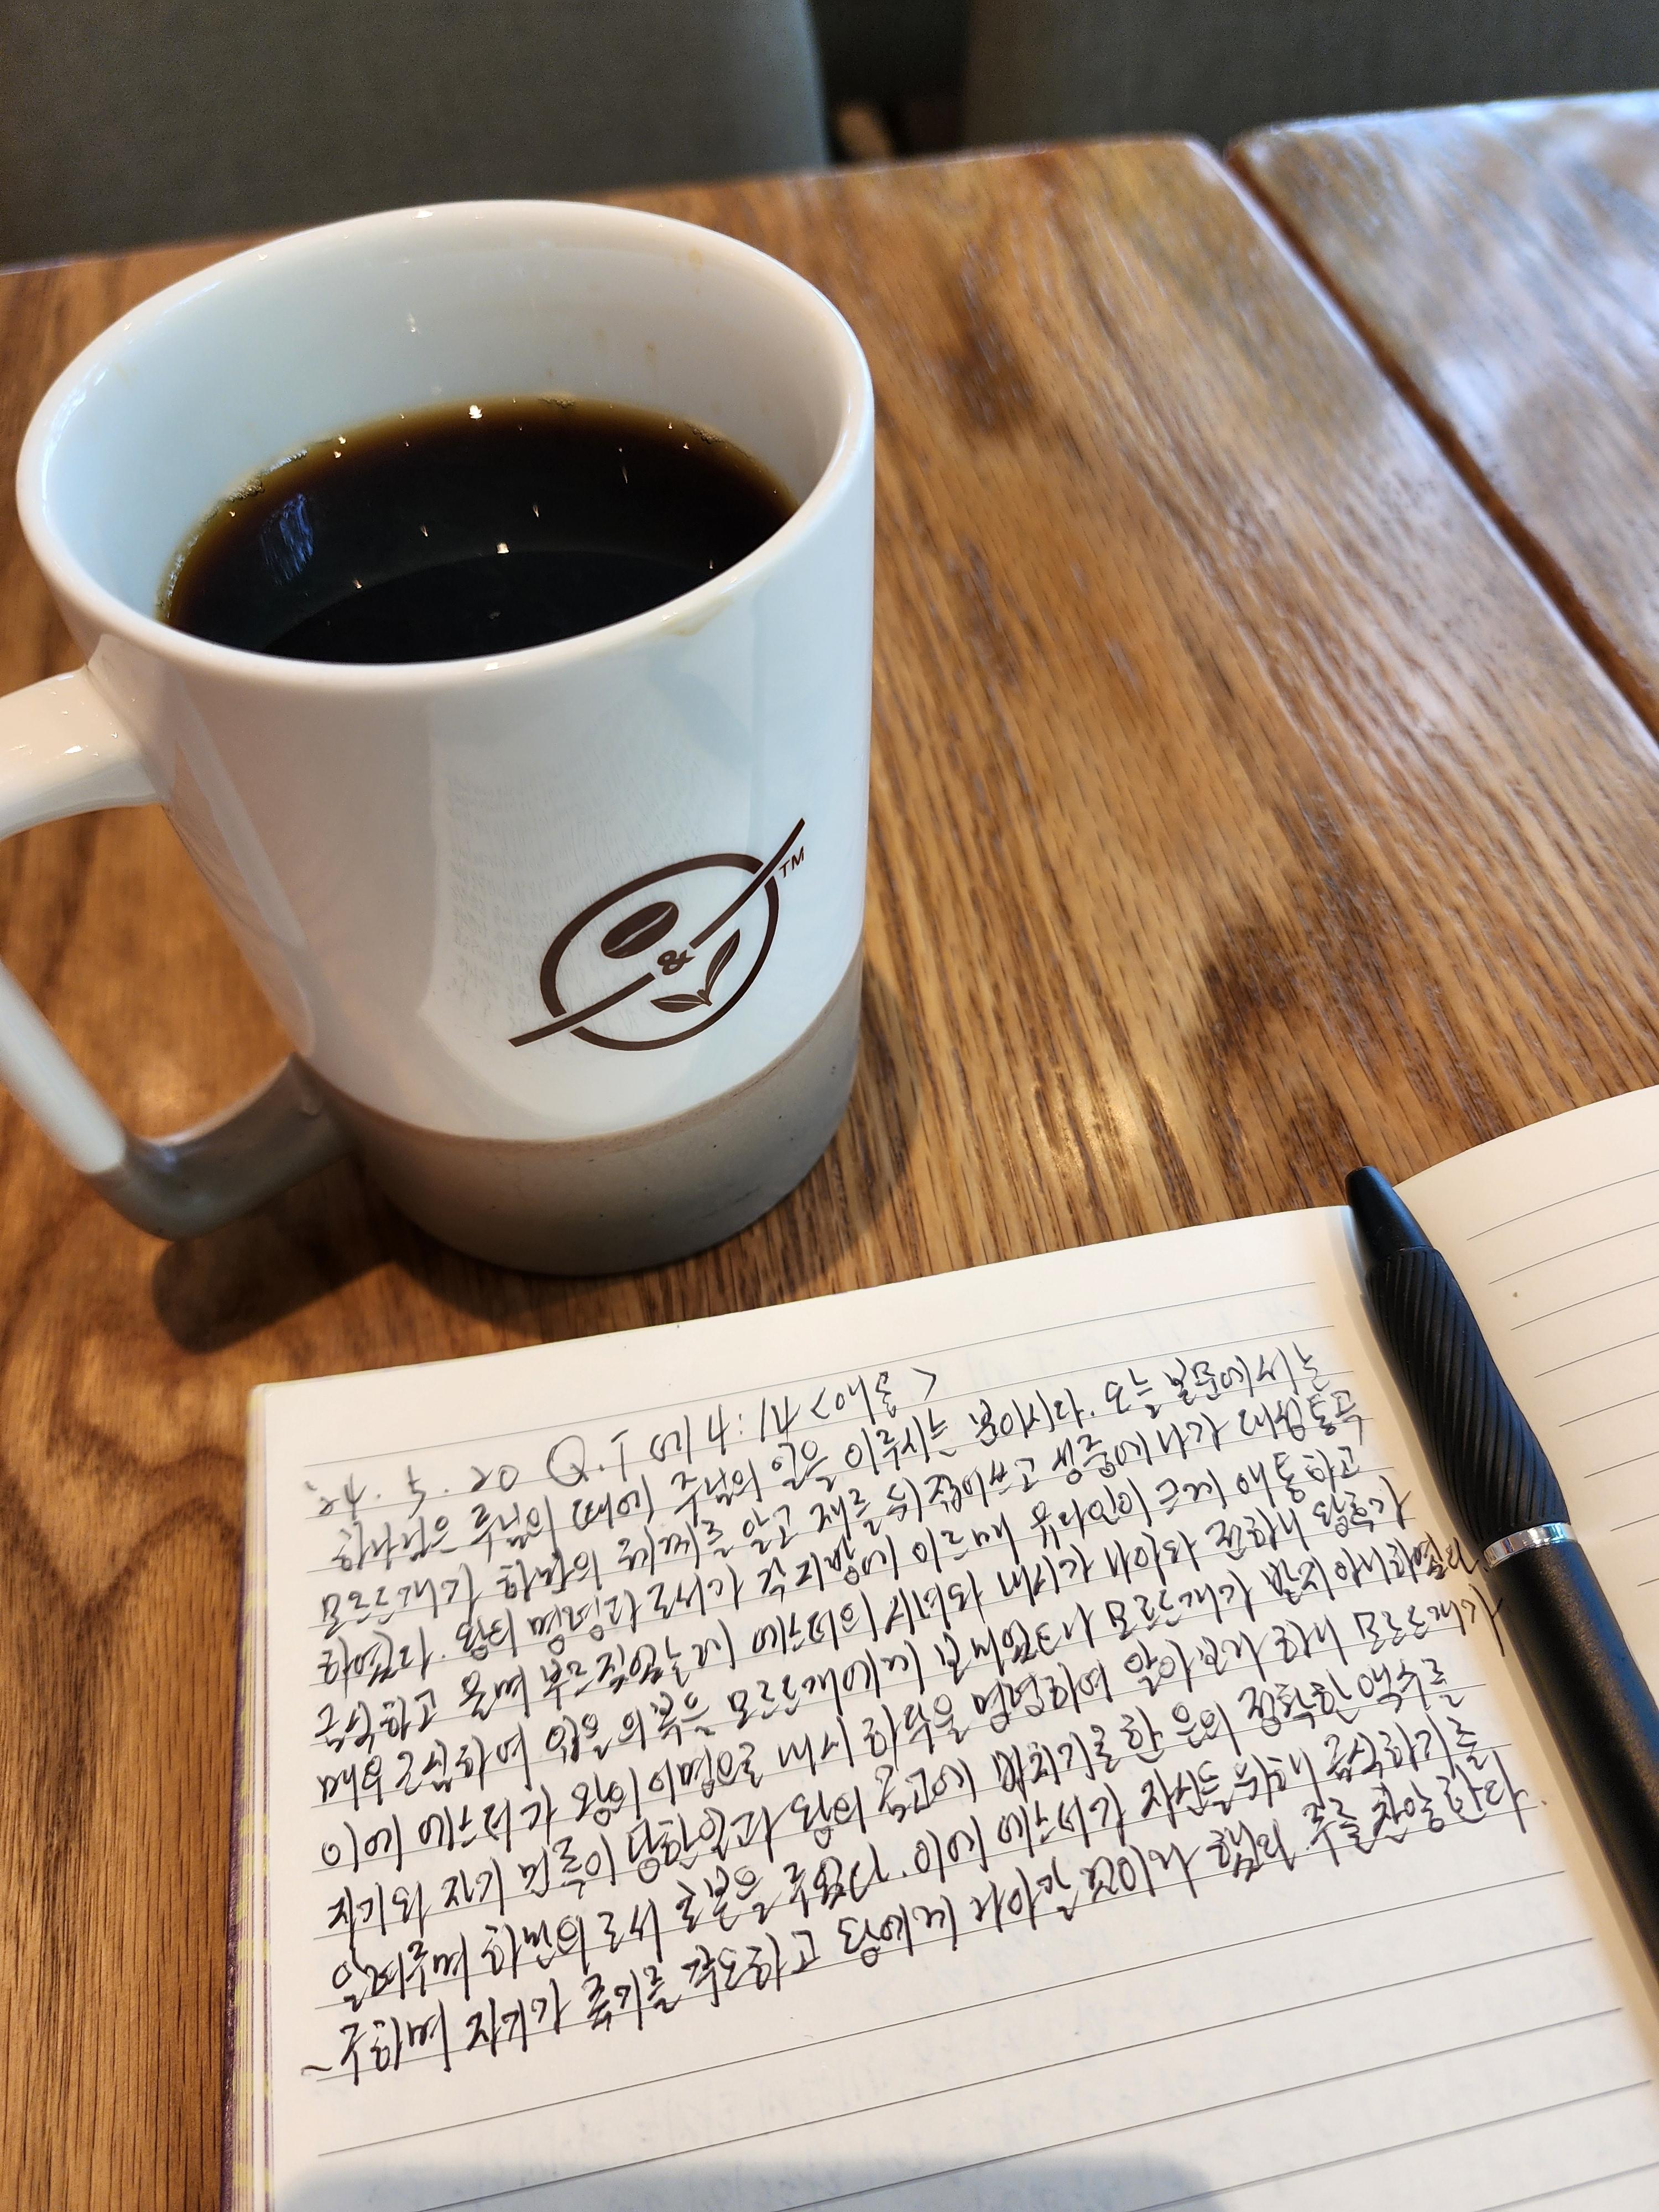 &
TM
'24. 5. 20 Q.T 에 4:1-17 <이해를 >
하나님은 주님의 때에 주님의 일을 이루시는 분이시다. 오늘 본문에서는
모르드개가 하만의 를 알고 재를 뒤집어쓰고 성중에 나가 대성통곡
하였다. 왕의 명령과 조서가 각 지방에 이르매 유다인이 크게 애통하고
금식하고 울며 부르짖었는데 에스더의 시녀와 내시가 나아와 전하니 왕후가
매우 근심하여 입을 의복을 모르드개에게 보내었으나 모르드개가 받지 아니하였다.
이에 에스더가 왕의 어명으로 내시 하닥을 명령하여 알아보라 하니 모르드개가
자기와 자기 민족이 당한일과 왕의 금고에 바치기로 한 은의 정확한 액수를
일러주며 하만의 조서 초본을 주었다. 이에 에스더가 자신을 위해 금식하기를
~구하며 자기가 죽기를 각오하고 왕에게 나아갈 것이니 했다. 주를 찬양한다.